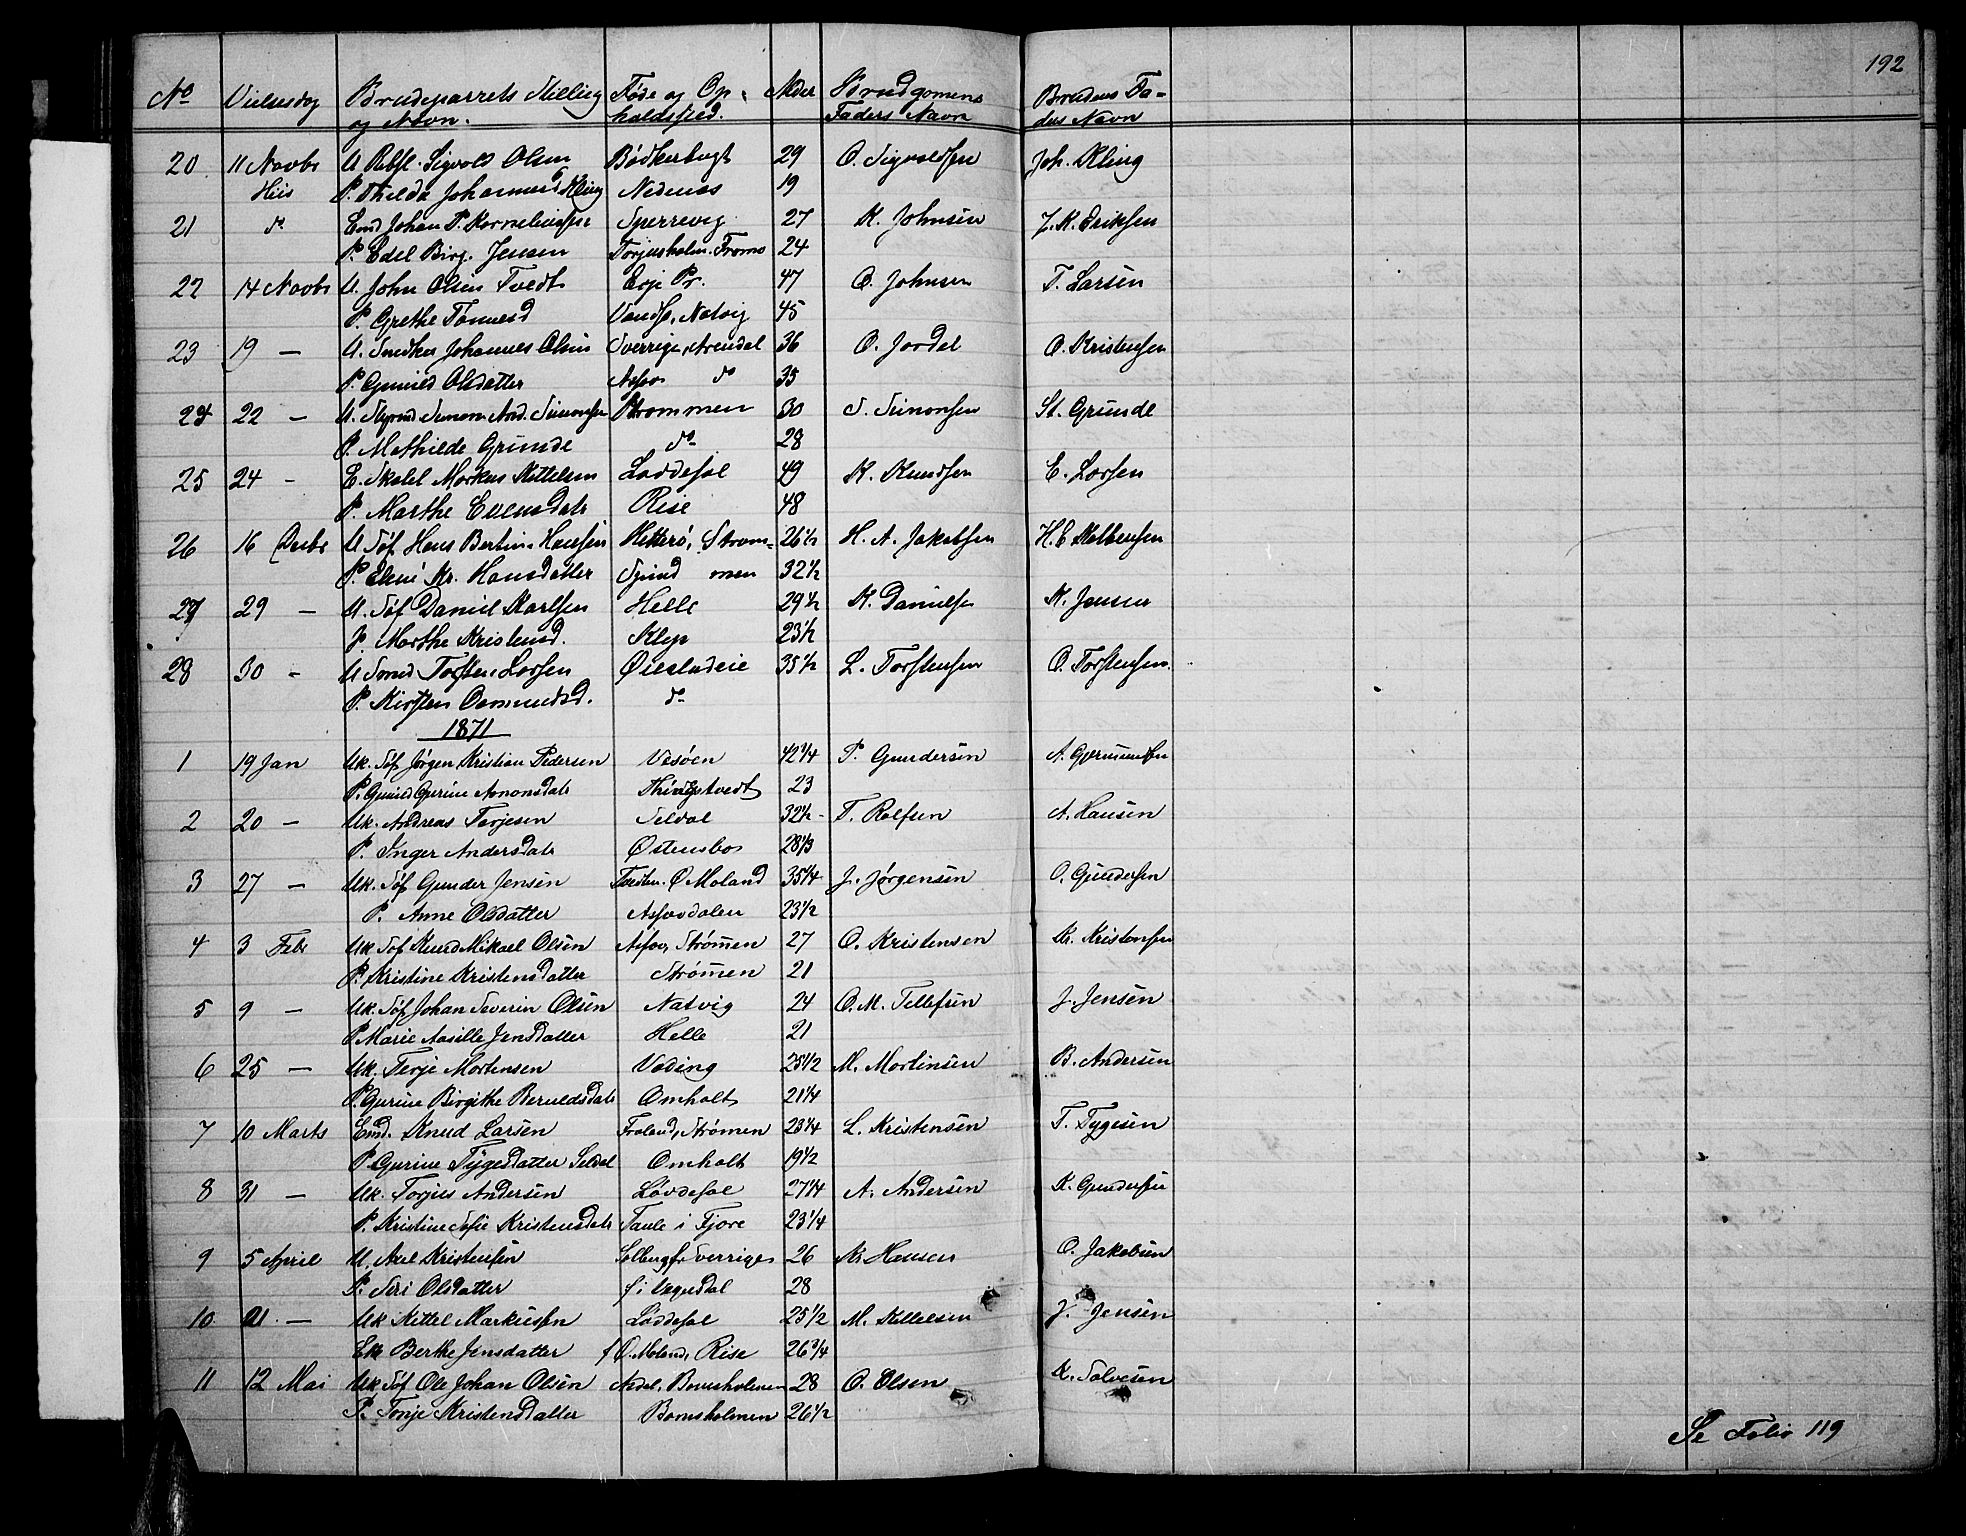 192
No Vielsesdag Brudeparrets Stilling og Navn. Føde og Opholdssted. Alder Brudgomens Faders Navn Brudens Faders Navn
20 11 Novbr U Sigvald Olsen Bødkerbugt 29 O. Sigvaldsen Joh. Kling
His P. Thilda Johannesd Kling Nedenæs 19
21 do Emd Johan P. Korneliussen Sperrevig 27 K. Johnsen J. K. Eriksen
P. Edel Birg. Jensen Torjusholm. Tromø 24
22 14 Novbr U. John Olsen Tvedt Evje Pr. 47 O. Johnsen T. Larsen
P. Grethe Tønnesd Natvig 45
23 19 — U. Snedker Johannes Olsen Sverrige, Arendal 36 O. Jordal O. Kristensen
P. Gunild Olsdatter Asfos do 35
24 22 — U. Simon And. Simonsen Strømmen 30 S. Simonsen St. Grunde
P. Mathilde Grunde do 28
25 24 - E. Markus Kittelsen Løddesøl 49 K. Knudsen E. Larsen
P. Marthe Evensdatr Rise 48
26 16 Decbr U Søf Hans Bertin Hansen Hitterø, Strøm- 26½ H. A. Jakobsen H. E
P. Eleni Kr. Hansdatter Spind men 32½
27 29 — U. Søf Daniel Karlsen Helle 29½ K. Danielsen K. Jensen
P. Marthe Kristensd. Klep 23½
28 30 - U Smed Torsten Larsen Øiestadeie 35½ L. Torstensen O. Torstensen
P. Kirsten Osmundsd. do
1871
1 19 Jan Uk. Søf Jørgen Kristian Pedersen Vesøen 42¼ P. Gundersen A.
P. Gunild Gurine Thingstvedt 23
2 20 — Uk. Andreas Torjesen Seldal 32½ T. Rolfsen A. Hansen
P. Inger Andersdatr Østensbo 28⅓
3 27 — Uk. Søf Gunder Jensen Ø Moland 35¼ J. Jørgensen O. Gundersen
P. Anne Olsdatter Asfosdalen 23½
4 3 Febr Uk Søf Knud Mikael Olsen Asfos, Strømen 27 O. Kristensen Kr. Kristensen
P. Kristine Kristensdatter Strømen 21
5 9 — Uk. Søf Johan Severin Olsen Natvig 24 O. M. Tellefsen J. Jensen
P Marie Aasille Jensdatter Helle 21
6 25 — Uk. Terje Mortensen Voding 25½ M. Mortensen B. Andersen
P. Gurine Birgithe Beruldsdatr Omholt 21¼
7 10 Marts Emd. Knud Larsen Froland, Strømen 23¼ L. Kristensen T. Tygesen
P. Gurine Tygesdatter Seldal Omholt 19½
8 31 — Uk. Torjus Andersen Løvdesøl 27¼ A. Andersen K. Gundersen
P. Kristine Sofie Kristensdatr Taule i Fjære 23¼
9 5 April U. Axel Kristensen Sverrige 26 Kr Hansen O. Jakobsen
P. Siri Olsdatter f i Vegusdal 28
10 21 — Uk Kittel Markussen Løddesøl 25½ M. Kittelsen J. Jensen
Ek Berthe Jensdatter f Ø. Moland, Rise 26¾
11 12 Mai Uk Søf Ole Johan Olsen Bomsholmen 28 O. Olsen K. Salvesen
P. Tonje Kristensdatter Bomsholmen 26½
Se Folio 119